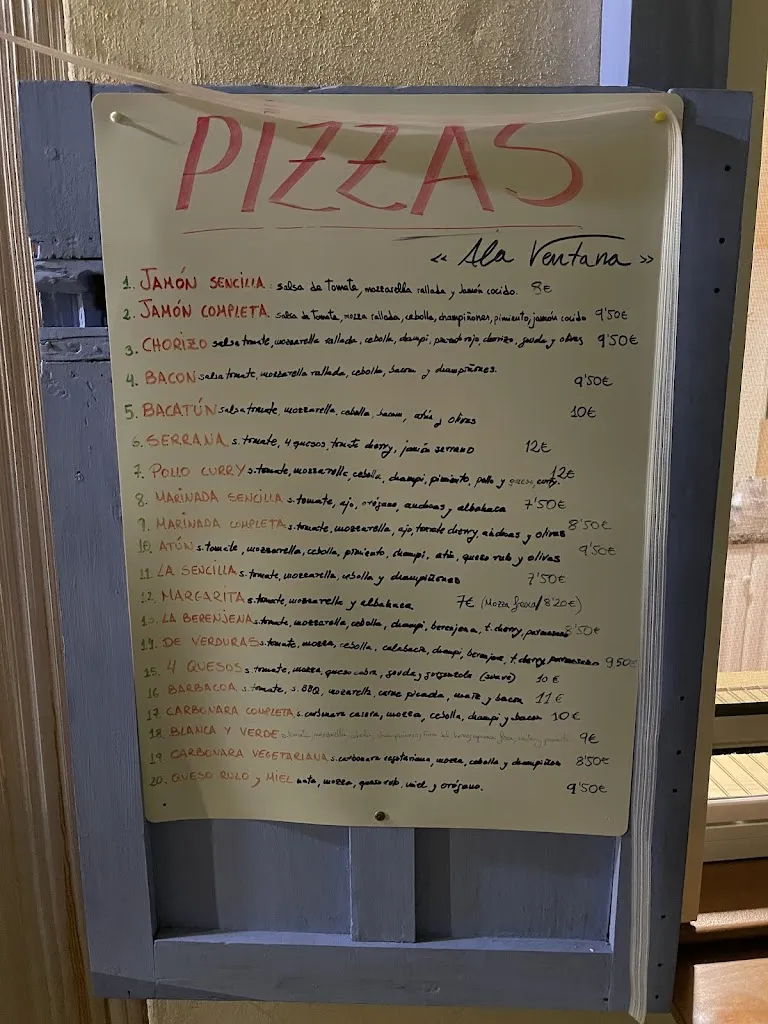 PIZZAS
« Ala Ventana »
1. JAMÓN SENCILLA: salsa de Tomate, mozzarella rallada y Jamón cocido. 8€
2. JAMÓN COMPLETA salsa de Tomate, mozza rallada, cebolla, champiñones, pimiento, jamón cocido 9'50€
3. CHORIZO salsa tomate, mozzarella rallada, cebolla, champi, chorizo, gouda y olivas 9'50€
4. BACON salsa tomate, mozzarella rallada, cebolla, bacon y champiñones. 9'50€
5. BACATÚN salsa tomate, mozzarella, cebolla, bacon, atún y olivas 10€
6. SERRANA s. tomate, 4 quesos, tomate cherry, jamón serrano 12€
7. POLLO CURRY s. tomate, mozzarella, cebolla, champi, pimiento, pollo y curry. 12€
8. MARINADA SENCILLA s. tomate, ajo, orégano, anchoas y albahaca 7'50€
9. MARINADA COMPLETA s. tomate, mozzarella, ajo, tomate cherry, anchoas y olivas 8'50€
10. ATÚN s. tomate, mozzarella, cebolla, pimiento, champi, atún, queso rulo y olivas 9'50€
11. LA SENCILLA s. tomate, mozzarella, cebolla y champiñones 7'50€
12. MARGARITA s. tomate, mozzarella y albahaca 7€ (Mozza fresca/8'20€)
13. LA BERENJENA s. tomate, mozzarella, cebolla, champi, berenjena, t. cherry, parmesano 8'50€
14. DE VERDURAS s. tomate, mozza, cebolla, calabacín, champi, berenjena, t. cherry, parmesano 9,50€
15. 4 QUESOS s. tomate, mozza, queso cabra, gouda y gorgonzola (suave) 10€
16 BARBACOA s. tomate, s. BBQ, mozzarella, carne picada, maíz y bacon 11€
17. CARBONARA COMPLETA s. carbonara casera, mozza, cebolla, champi y bacon 10€
18. BLANCA Y VERDE 9€
19 CARBONARA VEGETARIANA s. carbonara vegetariana, mozza, cebolla y champiñon 8'50€
20. QUESO RULO y MIEL nata, mozza, queso rulo, miel y orégano. 9'50€